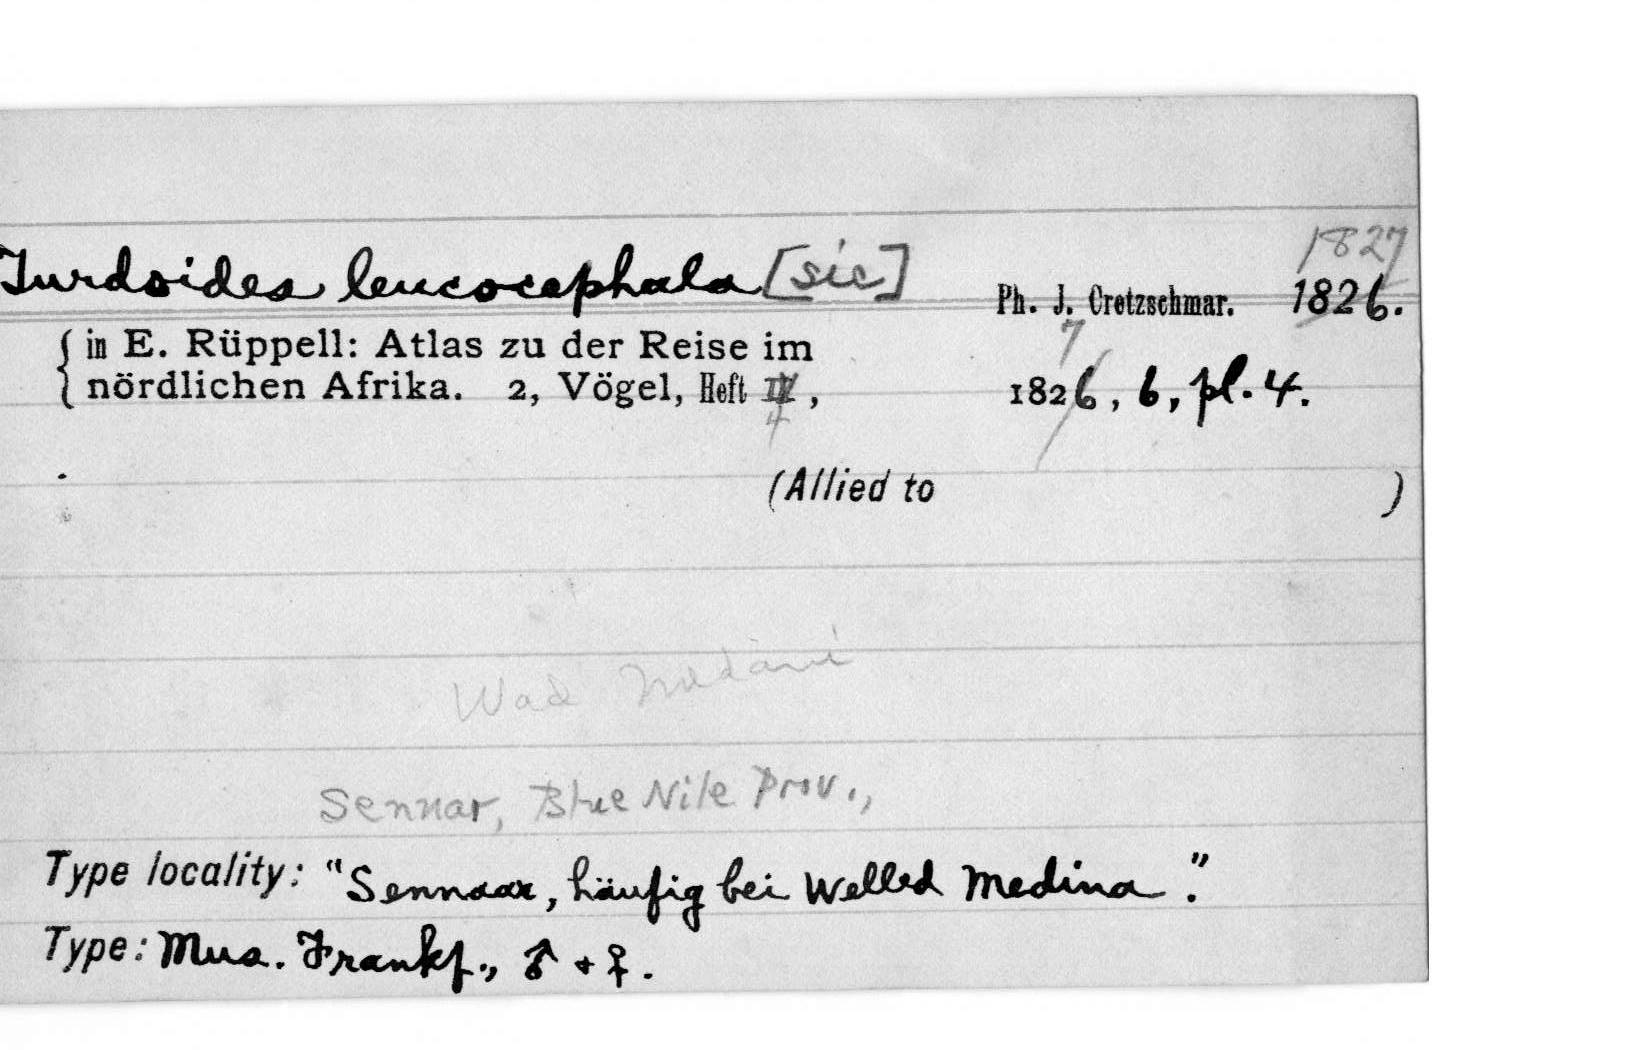 1827
Turdoides leucocephala [sic] Ph. J. Cretzschmar. 1826.
in E. Rüppell: Atlas zu der Reise im 7
nördlichen Afrika. 2, Vögel, Heft , 1826, 6, pl. 4.
4
(Allied to )
Wad Medani
Sennar, Blue Nile Prov.,
Type locality: "Sennaar, häufig bei Welled Medina."
Type: Mus. Frankf., ♂ + ♀.